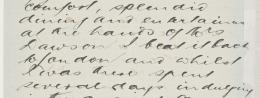 comfort, splendid
dining and entertaining
at the hands of Mrs
Lawson I beat it back
to London and whilst
I was there spent
several days indulging
in the